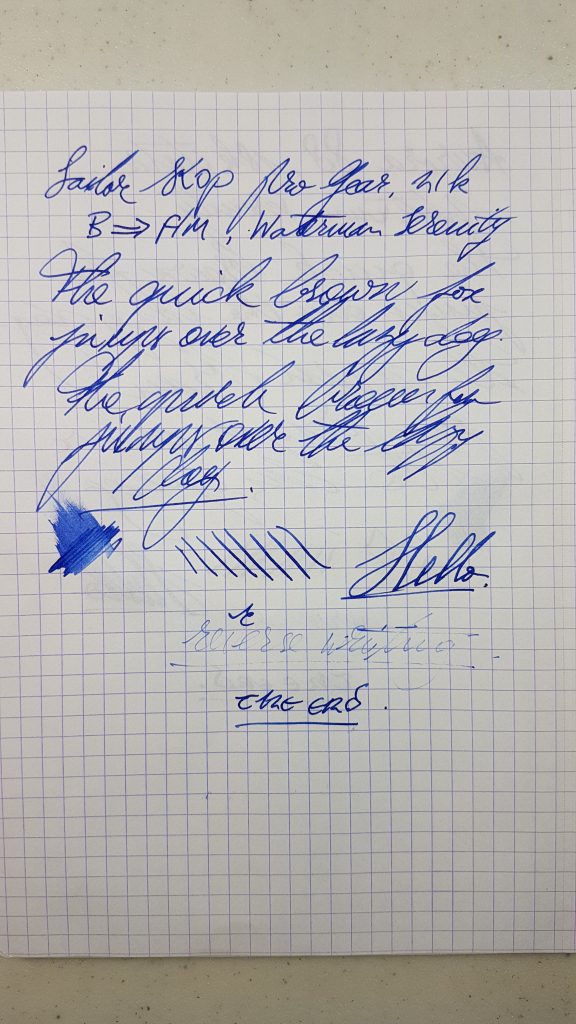 Sailor KOP Pro Gear, 21k
B ⇒ F/M, Waterman Serenity
The quick brown fox
jumps over the lazy dog.
The quick brown fox
jumps over the lazy
dog.
Hello.
reverse writing
THE END.